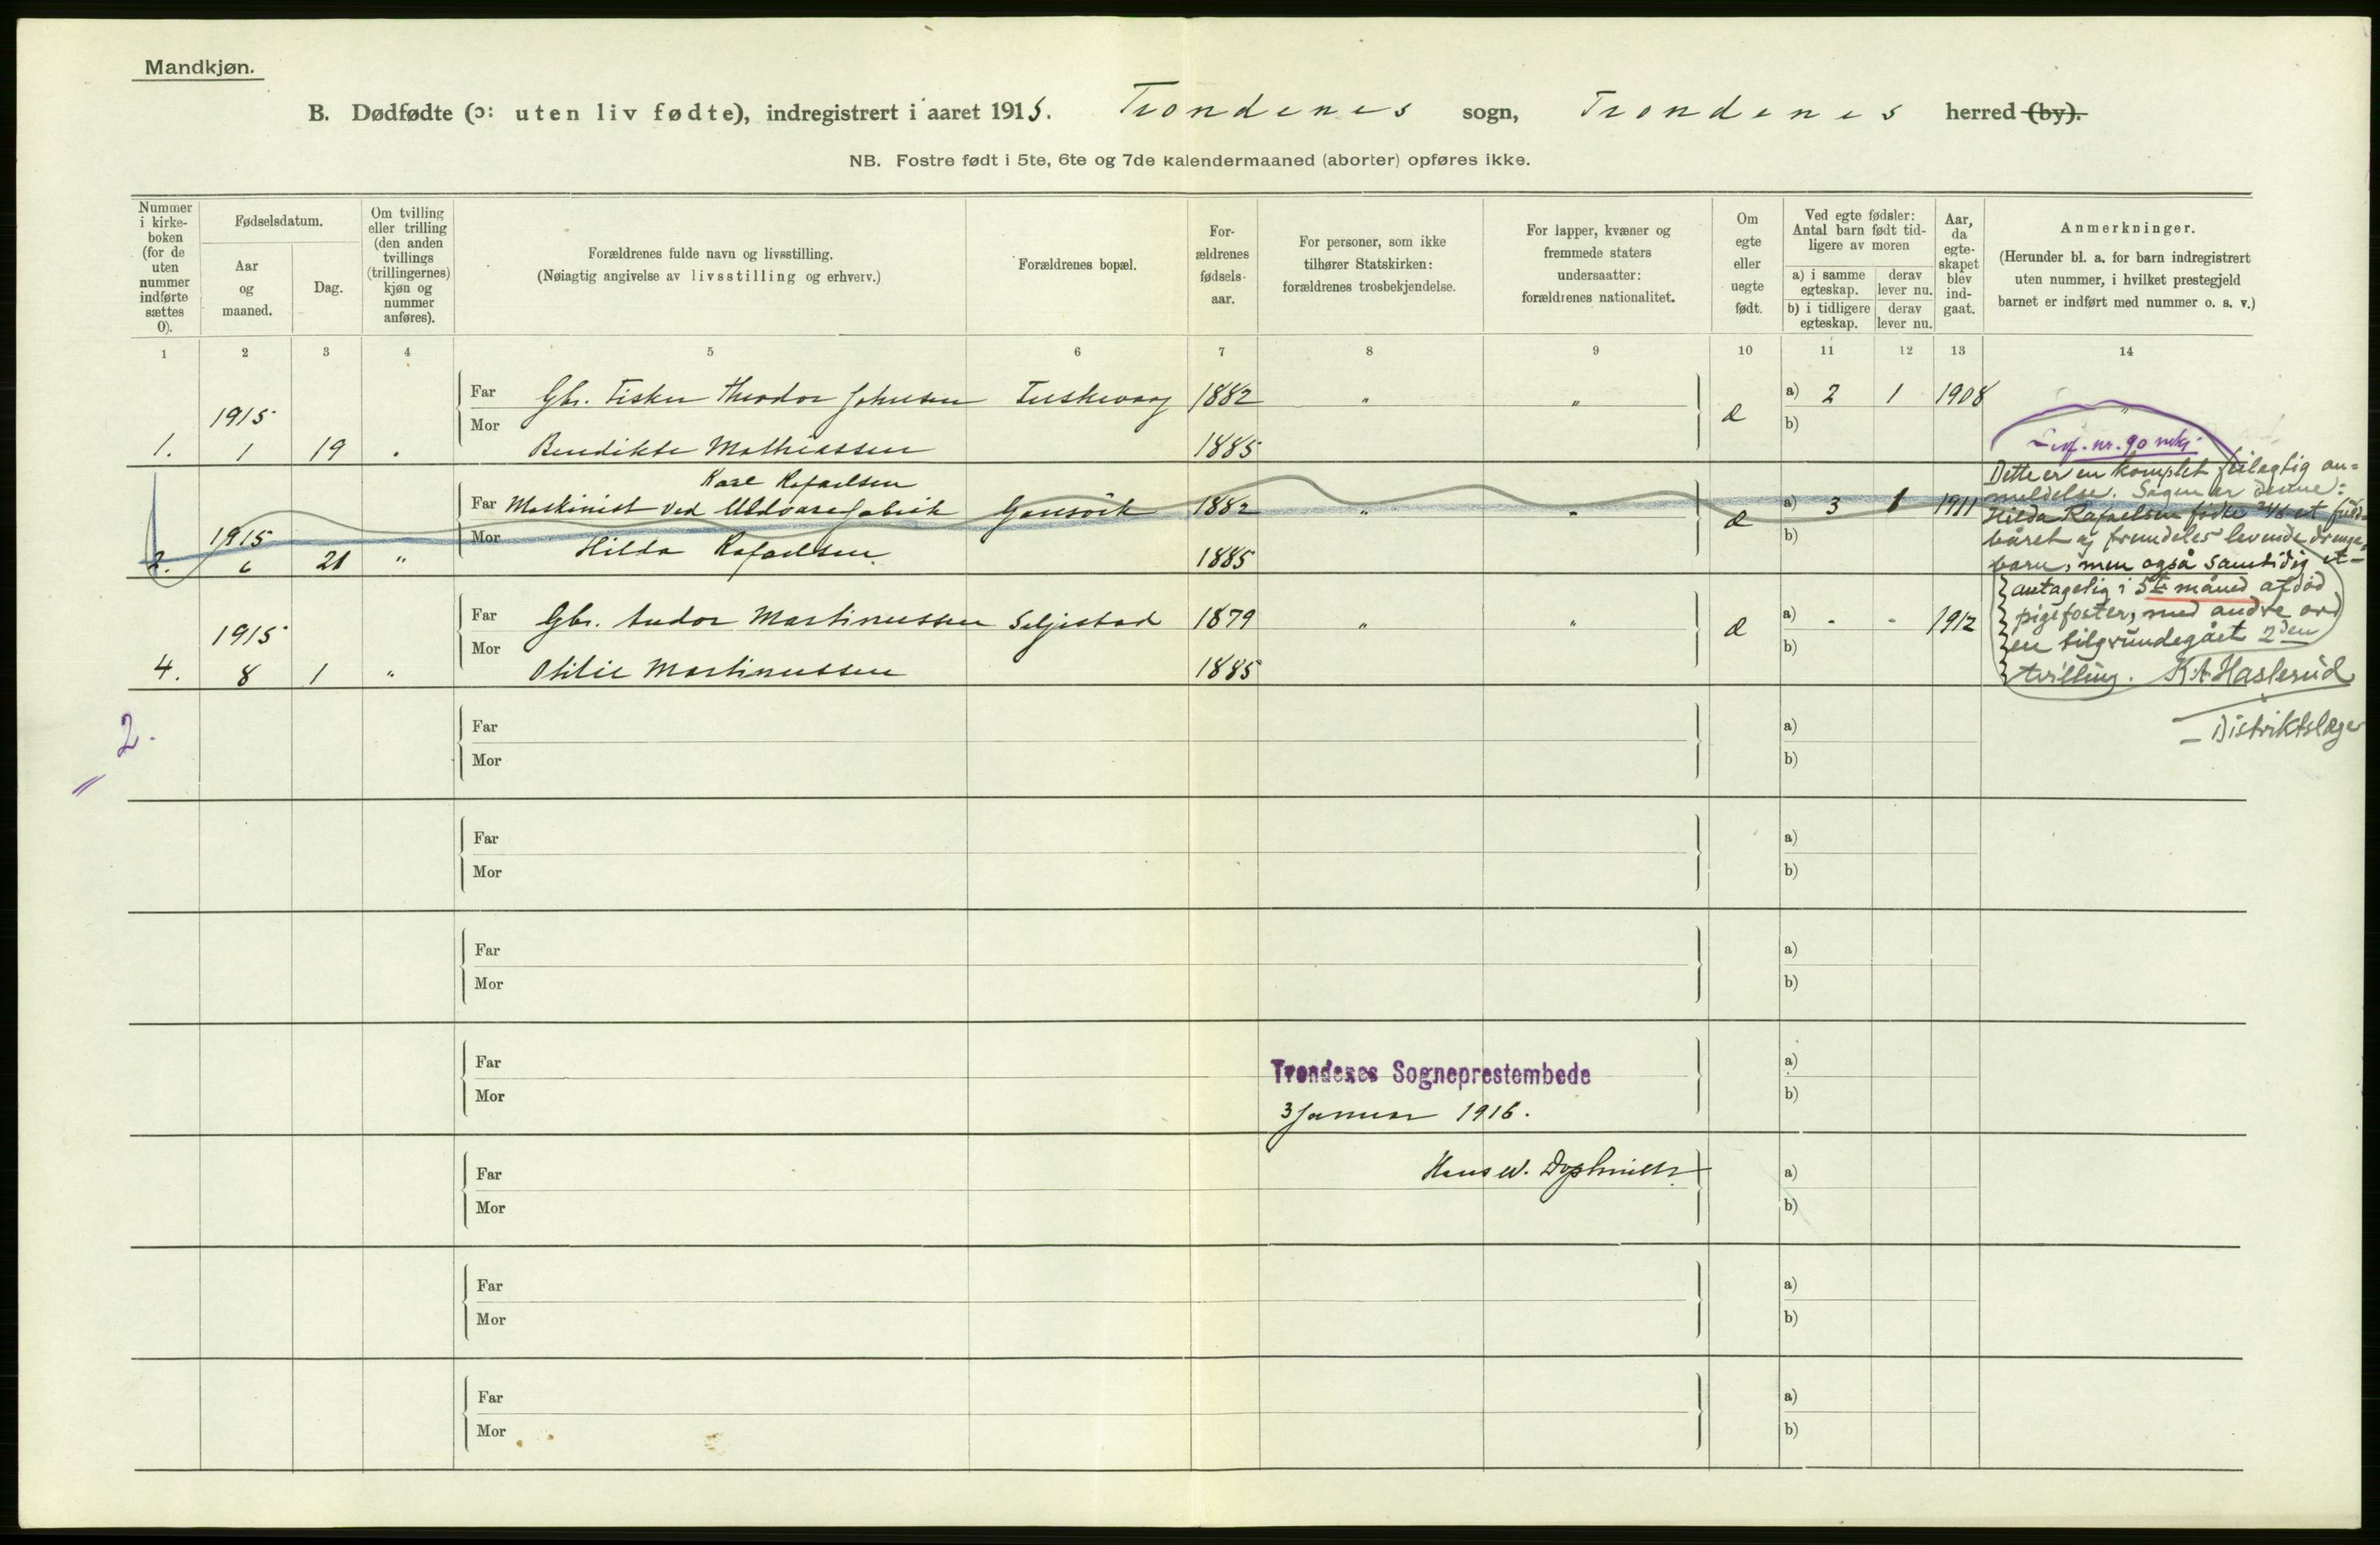 Mandkjøn.
B. Dødfødte (ɔ: uten liv fødte), indregistrert i aaret 1915. Trondenes sogn, Trondenes herred (by).
NB. Fostre født i 5te, 6te og 7de kalendermaaned (aborter) opføres ikke.
Nummer i kirke-boken (for de uten nummer indførte sættes 0).
Fødselsdatum.
Aar og maaned.
Dag.
Om tvilling eller trilling (den anden tvillings (trillingernes) kjøn og nummer anføres).
Forældrenes fulde navn og livsstilling.
(Nøiagtig angivelse av livsstilling og erhverv.)
Forældrenes bopæl.
For-ældrenes fødsels-aar.
For personer, som ikke tilhører Statskirken: forældrenes trosbekjendelse.
For lapper, kvæner og fremmede staters undersaatter: forældrenes nationalitet.
Om egte eller uegte født.
Ved egte fødsler: Antal barn født tid-ligere av moren
a) i samme egteskap. derav lever nu.
b) i tidligere egteskap. derav lever nu.
Aar, da egte-skapet blev ind-gaat.
Anmerkninger.
(Herunder bl. a. for barn indregistrert uten nummer, i hvilket prestegjeld barnet er indført med nummer o. s. v.)
1 2 3 4 5 6 7 8 9 10 11 12 13 14
Far Gbr. Fisker Theodor Johnsen 1882 " " e a) 2 1 1908
1915
Mor b)
1. 1 19 Bendikte Mathiassen 1885
Karl Rafaelsen
Far Maskinist ved Uldvarefabrik Gansvik 1882 " " e a) 3 1 1911
1915
Mor b)
2. 6 21 " Hilda Rafaelsen. 1885
Far Gbr. Andor Martinussen Seljestad 1879 " " e a) - - 1912
1915
Mor b)
4. 8 1 " Otilie Martinussen 1885
Lev. nr. 90 mkj.
Dette er en komplet feilagtig an=
meldelse. Sagen er denne:
Hilda Rafaelsen fødte 21/6 et fuld=
båret og fremdeles levende drenge-
barn, men også samtidig et
antagelig i 5te måned afdød
pigefoster, med andre ord
en tilgrundegået 2den
tvilling. K.A. Haslerud
Distriktslæge
2.
Far a)
Mor b)
Far a)
Mor b)
Far a)
Mor b)
Far a)
Trondenes Sogneprestembede
Mor b)
3 Januar 1916.
Far a)
Hans W.
Mor b)
Far a)
Mor b)
Far a)
Mor b)